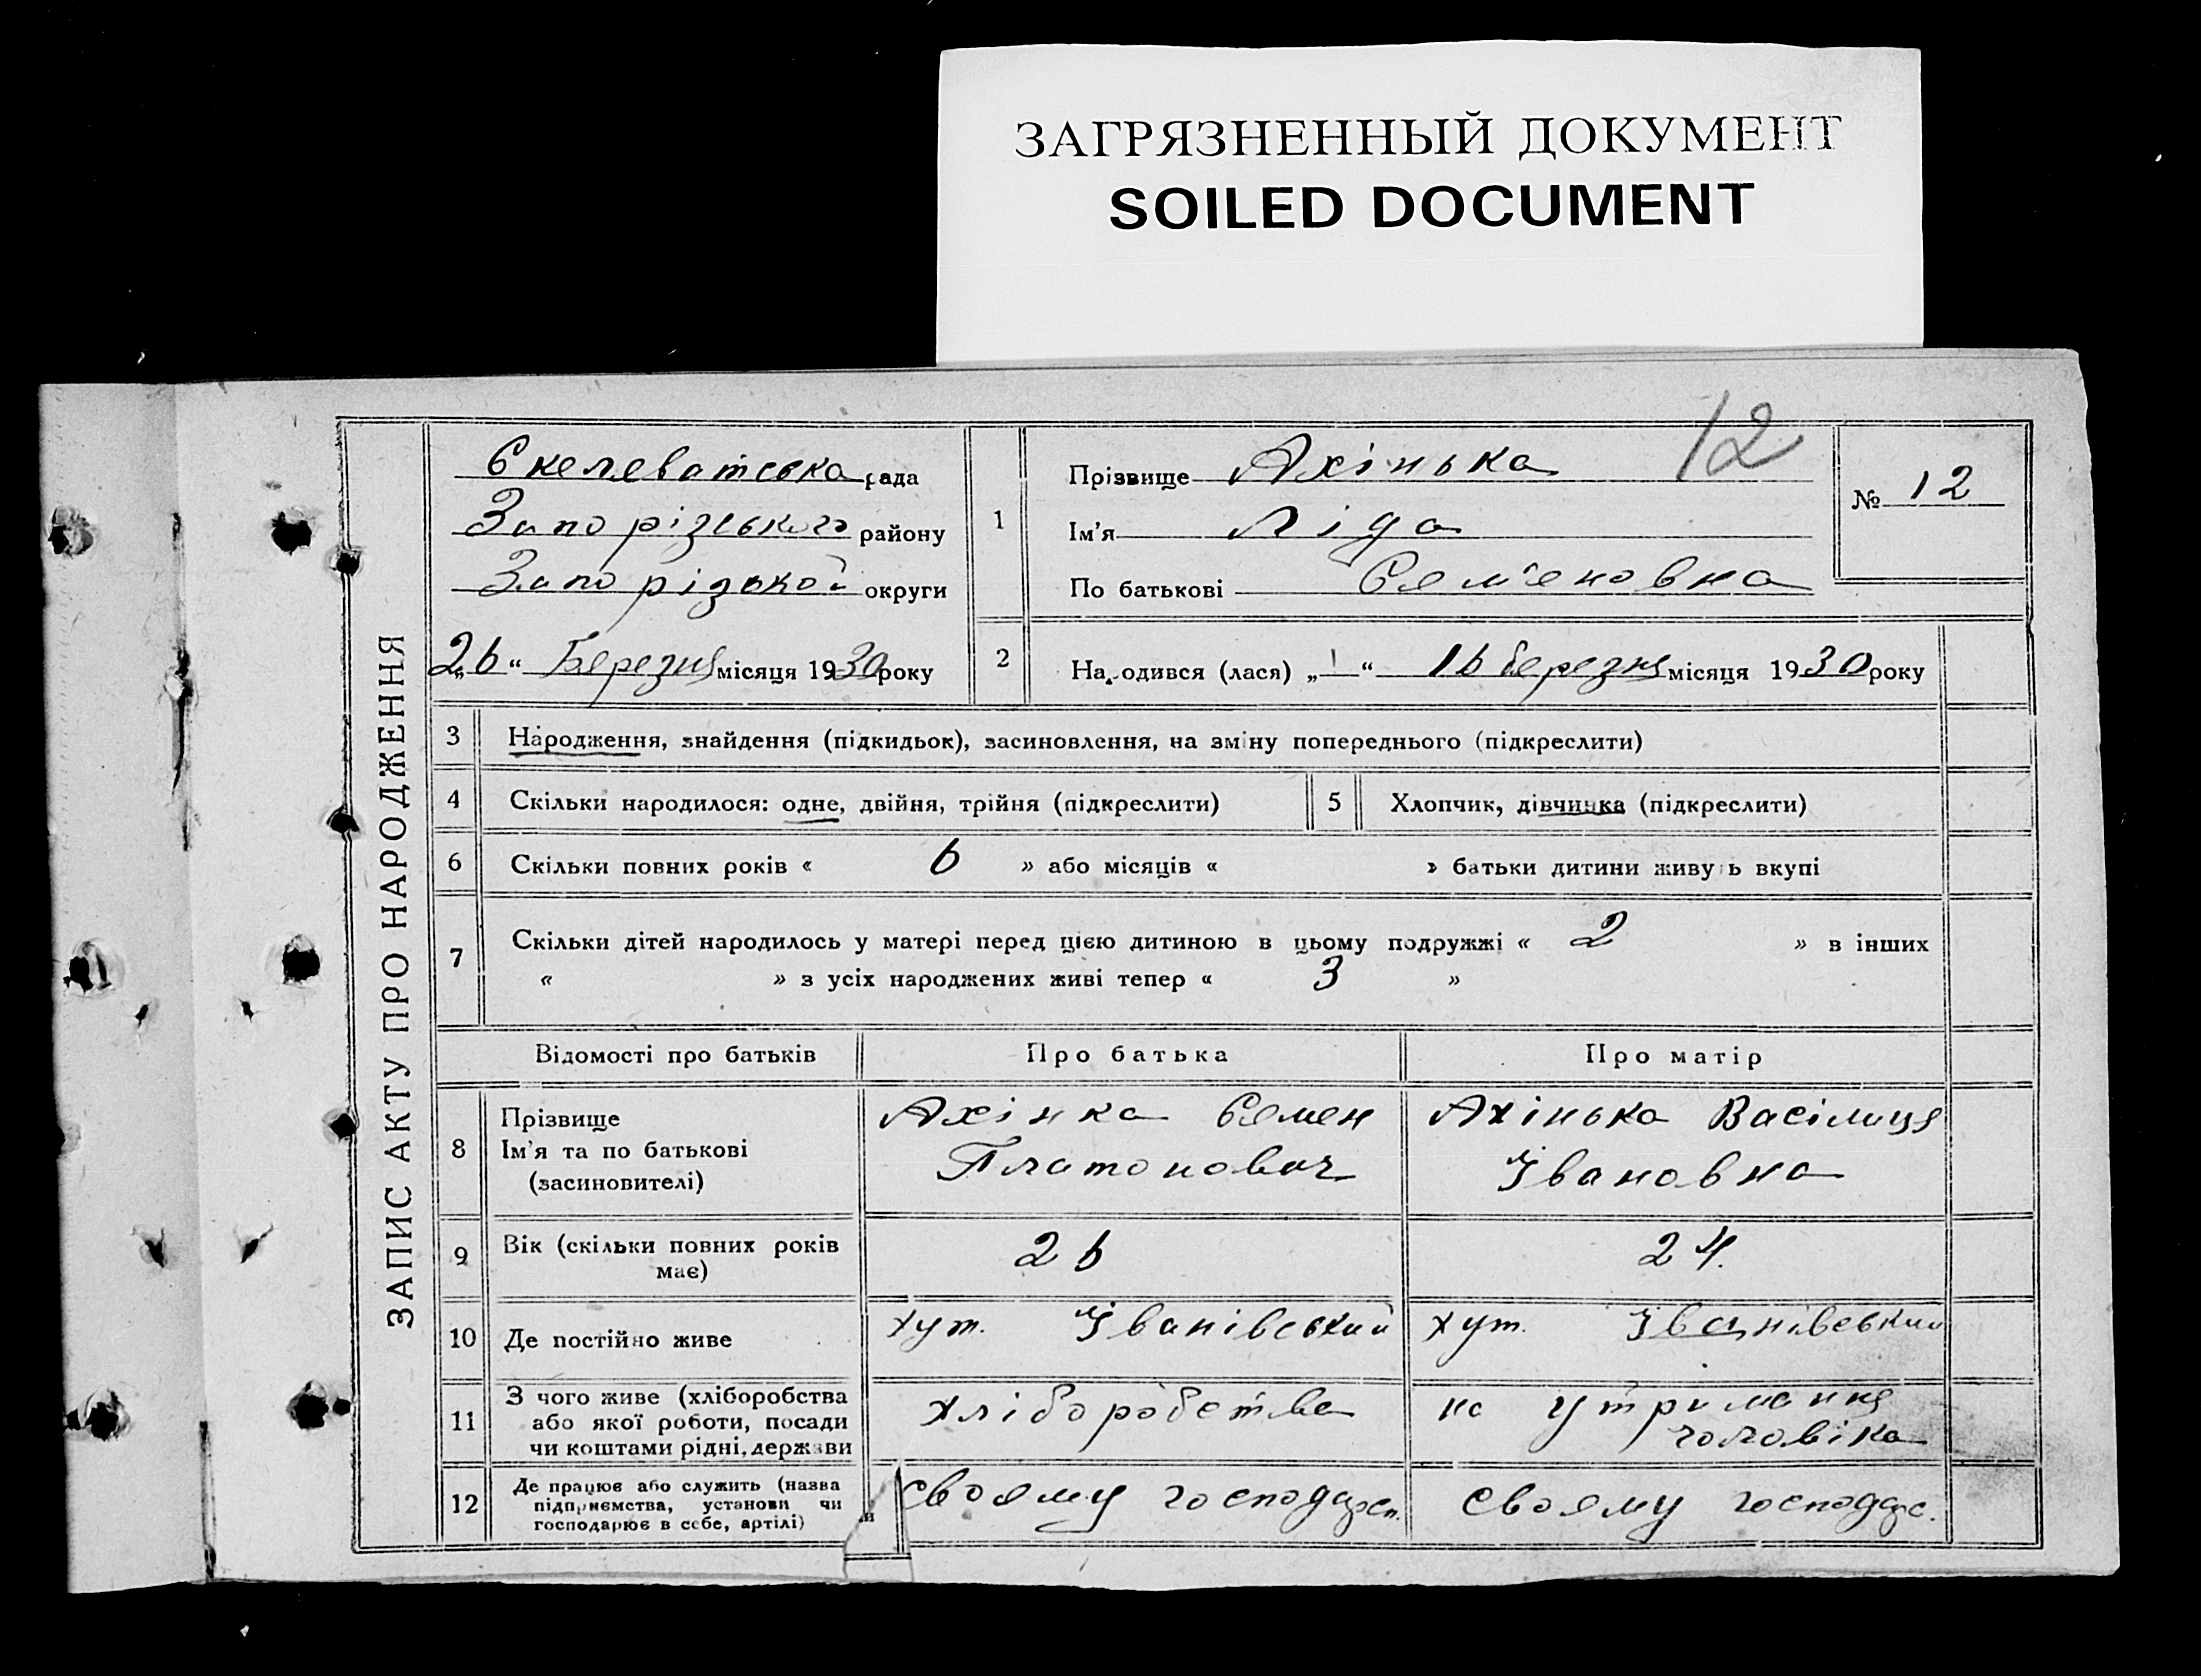 ЗАГРЯЗНЕННЫЙ ДОКУМЕНТ
SOILED DOCUMENT
12
ЗАПИС АКТУ ПРО НАРОДЖЕННЯ
Скелеватська рада
Запорізького району
Запорізької округи
„26“ Березня місяця 1930 року
1
Прізвище Ахінька
Ім'я Ліда
По батькові Семеновна
№ 12
2 Народився (лася) „ “ 16 березня місяця 1930 року
3 Народження, знайдення (підкидьок), засиновлення, на зміну попереднього (підкреслити)
4 Скільки народилося: одне, двійня, трійня (підкреслити) 5 Хлопчик, дівчинка (підкреслити)
6 Скільки повних років « 6 » або місяців « » батьки дитини живуть вкупі
7 Скільки дітей народилось у матері перед цією дитиною в цьому подружжі « 2 » в інших
« » з усіх народжених живі тепер « 3 »
Відомості про батьків Про батька Про матір
8 Прізвище
Ім'я та по батькові
(засиновителі)
Ахінка Семен
Платонович
Ахінька Васілиця
Івановна
9 Вік (скільки повних років
має)
26
24.
10 Де постійно живе
хут. Іванівський
хут. Іванівський
11 З чого живе (хліборобства
або якої роботи, посади
чи коштами рідні, держави
хліборобства
на утримання
чоловіка
12 Де працює або служить (назва
підприємства, установи чи
господарює в себе, артілі)
свояму господарсп.
свояму господарс.